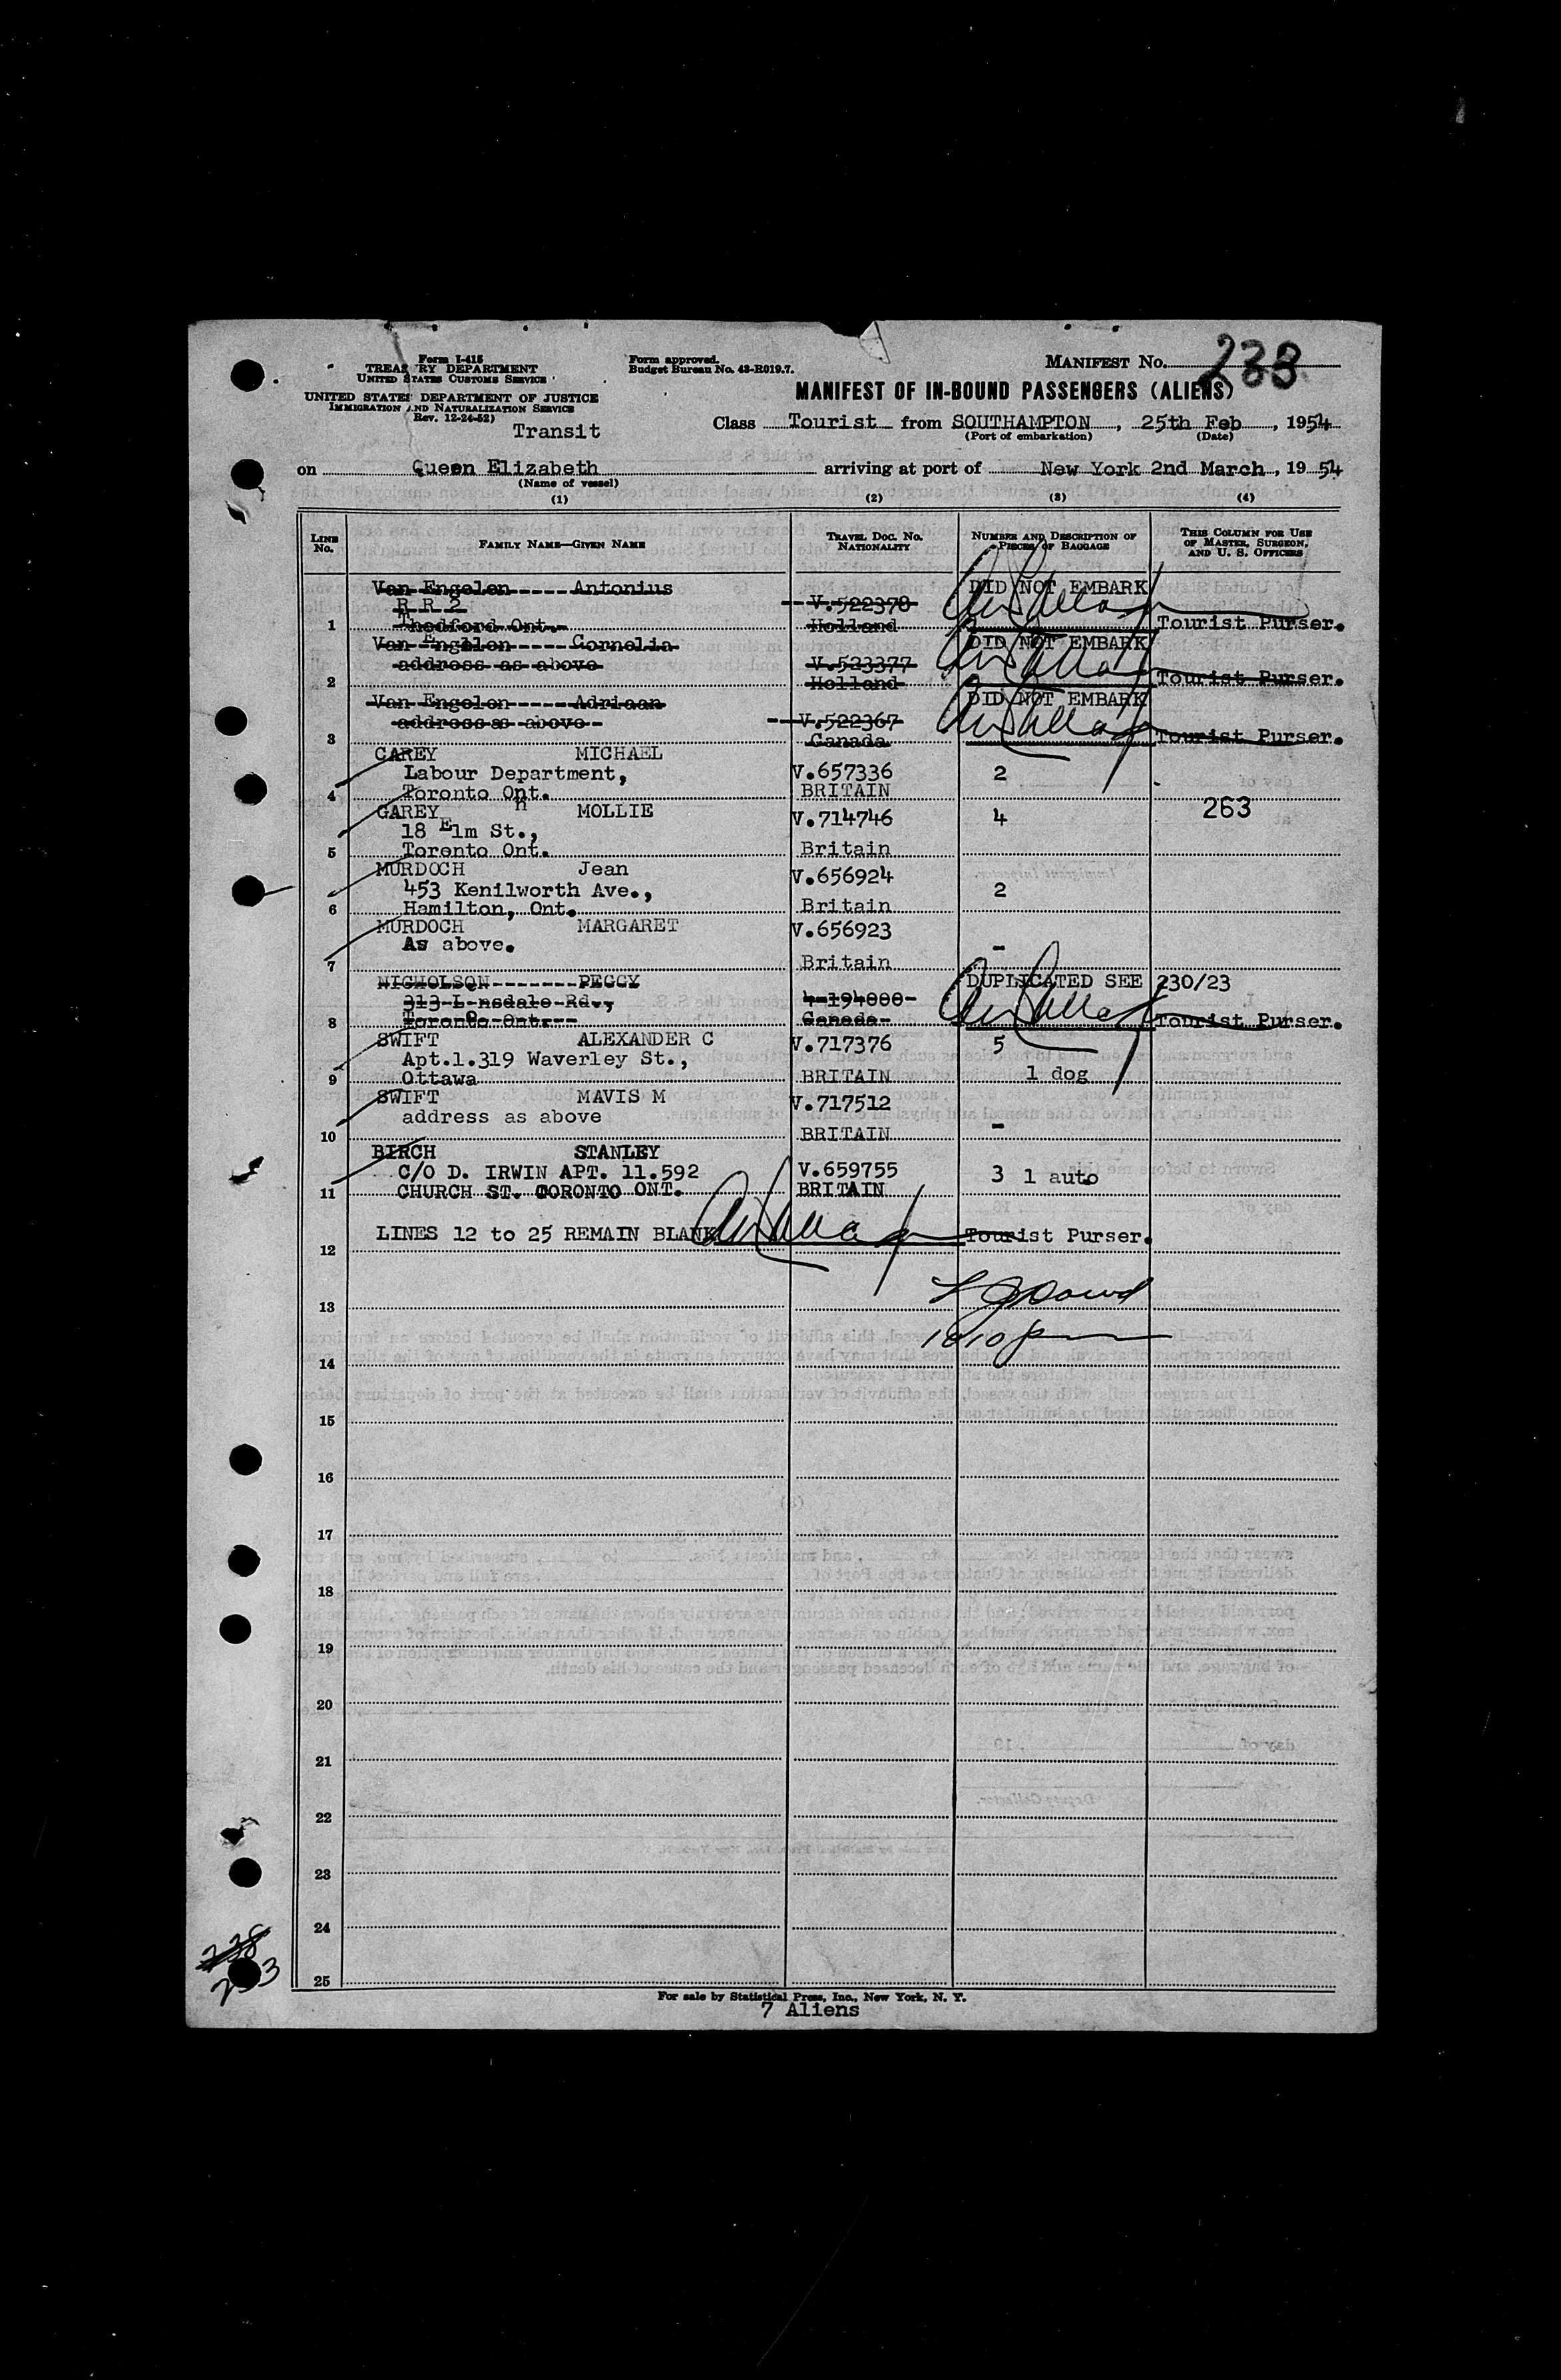 Form I-415
TREASURY DEPARTMENT
UNITED STATES CUSTOMS SERVICE
UNITED STATES DEPARTMENT OF JUSTICE
IMMIGRATION AND NATURALIZATION SERVICE
Rev. 12-24-52)
Transit
Form approved.
Budget Bureau No. 43-R019.7.
MANIFEST No. 233
MANIFEST OF IN-BOUND PASSENGERS (ALIENS)
Class Tourist from SOUTHAMPTON, 25th Feb, 1954
(Port of embarkation) (Date)
on Queen Elizabeth arriving at port of New York 2nd March, 1954
(Name of vessel)
(1) (2) (3) (4)
LINE No. FAMILY NAME—GIVEN NAME TRAVEL DOC. No. NATIONALITY NUMBER AND DESCRIPTION OF PIECES OF BAGGAGE THIS COLUMN FOR USE OF MASTER, SURGEON, AND U. S. OFFICERS
Van Engelen Antonius DID NOT EMBARK
R R 2 V.522378
1 Thedford Ont. Holland Tourist Purser.
Van Engelen Cornelia DID NOT EMBARK
address as above V.523377
2 Holland Tourist Purser.
Van Engelen Adriaan DID NOT EMBARK
address as above V.522367
3 Canada Tourist Purser.
CAREY MICHAEL
Labour Department, V.657336 2
4 Toronto Ont. BRITAIN
GAREY MOLLIE V.714746 4 263
18 Elm St.,
5 Toronto Ont. Britain
MURDOCH Jean V.656924
453 Kenilworth Ave., 2
6 Hamilton, Ont. Britain
MURDOCH MARGARET V.656923
As above. -
7 Britain
NICHOLSON PEGGY DUPLICATED SEE 230/23
313 L nsdale Rd., 4-194000
8 Toronto Ont. Canada Tourist Purser.
SWIFT ALEXANDER C V.717376 5
Apt.1.319 Waverley St.,
9 Ottawa BRITAIN 1 dog
SWIFT MAVIS M V.717512
address as above -
10 BRITAIN
BIRCH STANLEY
C/O D. IRWIN APT. 11.592 V.659755 3 1 auto
11 CHURCH ST. TORONTO ONT. BRITAIN
LINES 12 to 25 REMAIN BLANK Tourist Purser.
12
13
1010 pm
14
15
16
17
18
19
20
21
22
23
24
25
238
233
For sale by Statistical Press, Inc., New York, N. Y.
7 Aliens